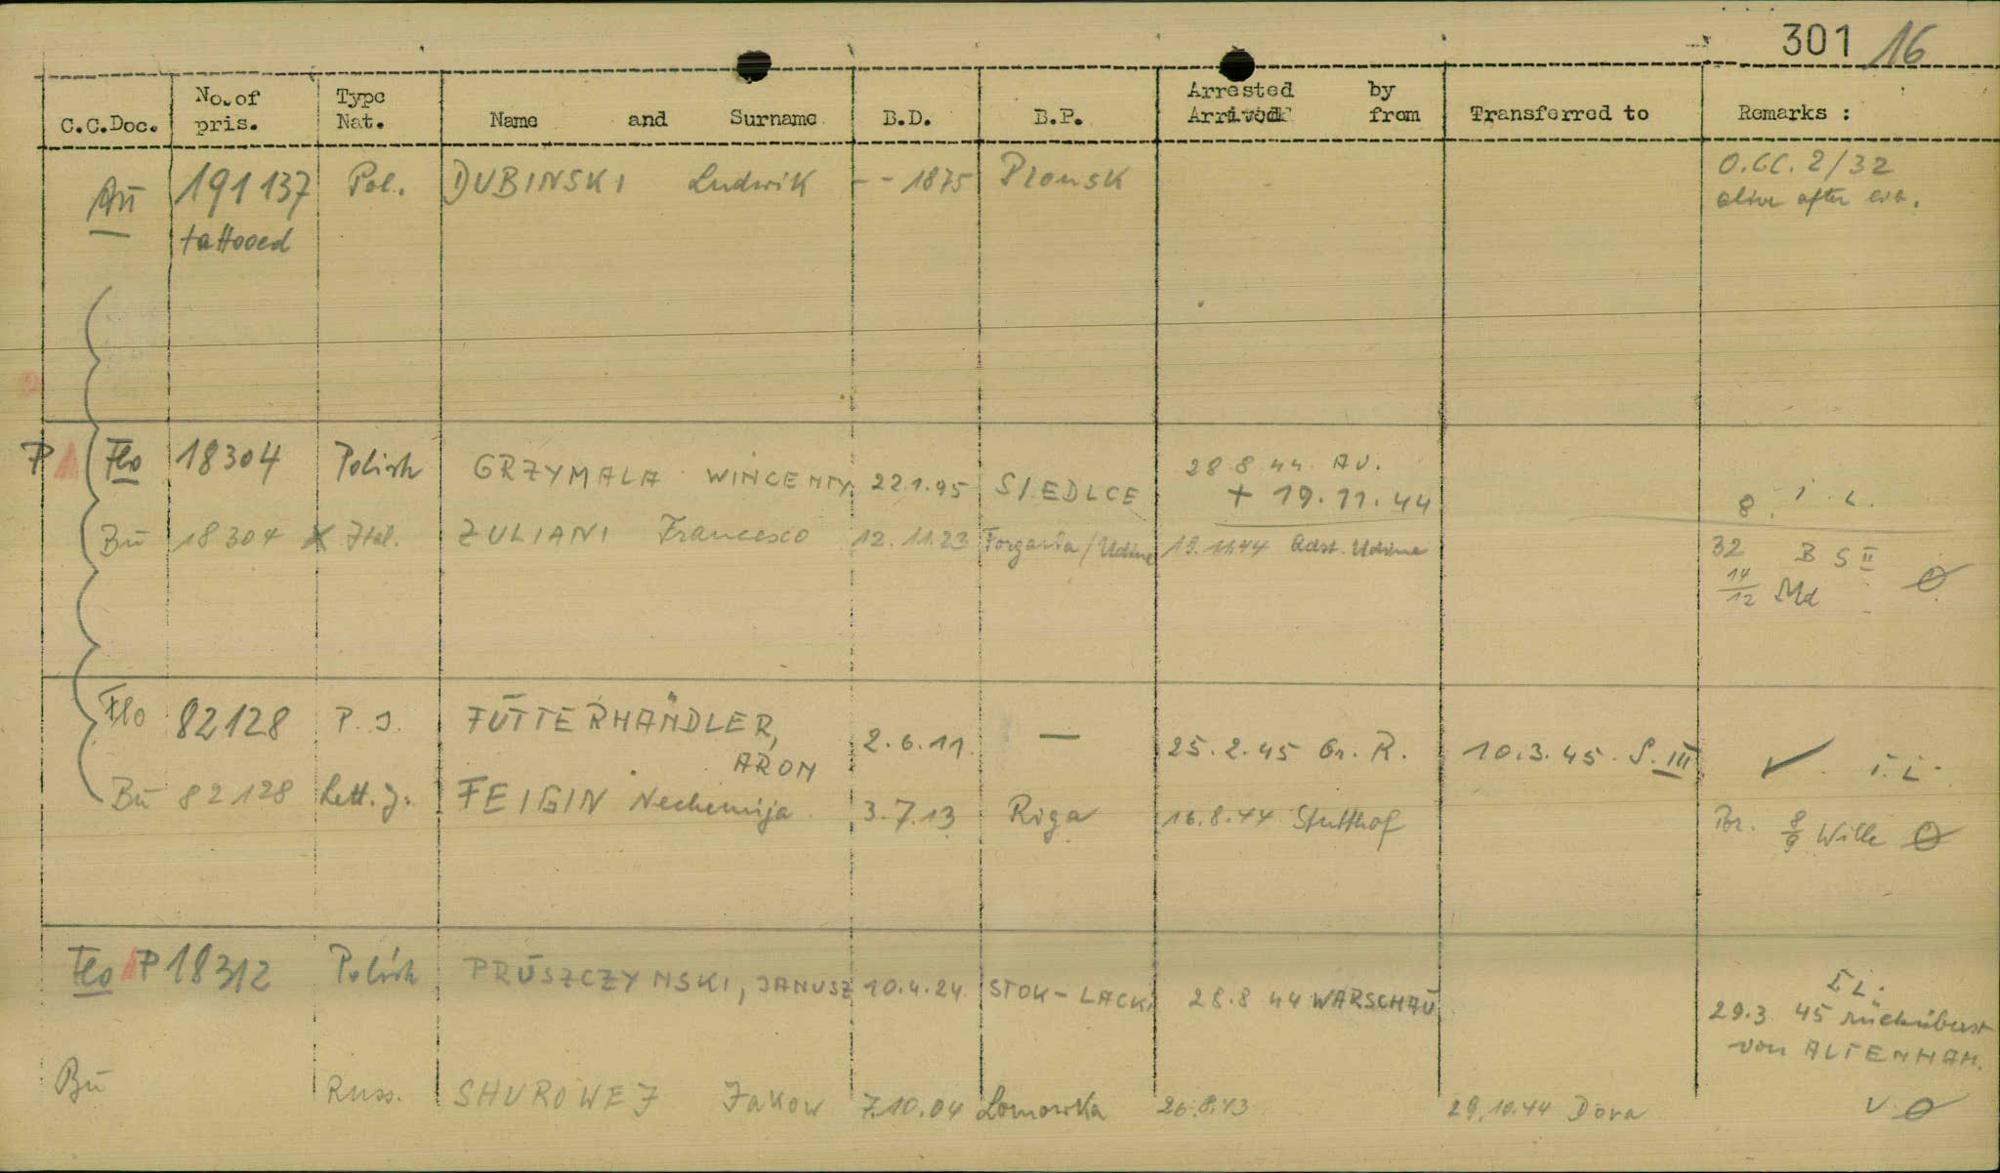 301 16
C.C.Doc. No. of pris. Type Nat. Name and Surname B.D. B.P. Arrested by Arrived from Transferred to Remarks :
Au 191137 Pol. DUBINSKI Ludwik - - 1875 Plonsk O.CC. 2/32
tattooed alive after
P Flo 18304 Polish GRZYMALA WINCENTY 22.1.95 SIEDLCE 28 8 44 AU.
+ 19.11.44 8. i. L.
Bu 18304 x Ital. ZULIANI Francesco 12.11.23 Forgaria/Udine 19.11.44 Adst. Udine 32 B S II
14/12 Md
Flo 82128 P. J. FUTTERHÄNDLER, ARON 2.6.11. — 25.2.45 Gr. R. 10.3.45. S. III ✓ i. L.
Bu 82128 Lett. J. FEIGIN Nechemija 3.7.13 Riga 16.8.44 Stutthof Br. 8/9 Wille
Flo P 18312 Polish PRUSZCZYNSKI, JANUSZ 10.4.24 STOK-LACKI 28.8 44 WARSCHAU I L.
29.3. 45 rücküberst
von ALTENHAM.
Bu Russ. SHUROWEJ Jakow 7.10.04 Lomowka 26.8.43 29.10.44 Dora v